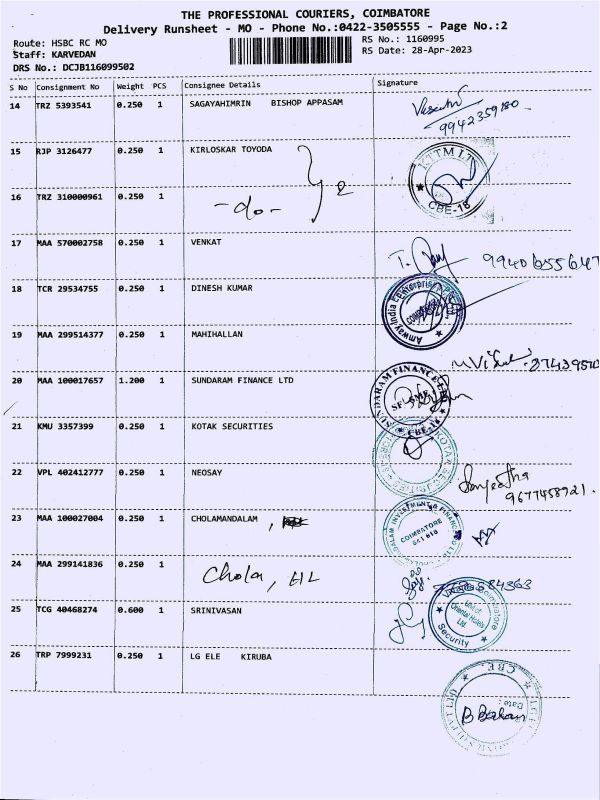 THE PROFESSIONAL COURIERS, COIMBATORE
Delivery Runsheet - MO - Phone No.:0422-3505555 - Page No.:2
Route: HSBC RC MO
RS No.: 1160995
Staff: KARVEDAN
RS Date: 28-Apr-2023
DRS No.: DCJB116099502
S No Consignment No Weight PCS Consignee Details Signature
14 TRZ 5393541 0.250 1 SAGAYAHIMRIN BISHOP APPASAM
9942359180
15 RJP 3126477 0.250 1 KIRLOSKAR TOYODA
KTTM LTD
CBE-18
16 TRZ 310000961 0.250 1
-do- 2
17 MAA 570002758 0.250 1 VENKAT
9940655647
18 TCR 29534755 0.250 1 DINESH KUMAR
Amway India Enterprises
19 MAA 299514377 0.250 1 MAHIHALLAN
20 MAA 100017657 1.200 1 SUNDARAM FINANCE LTD
SUNDARAM FINANCE LTD
CBE-18
21 KMU 3357399 0.250 1 KOTAK SECURITIES
KOTAK SECURITIES
22 VPL 402412777 0.250 1 NEOSAY
Sangeetha
9677458921.
23 MAA 100027004 0.250 1 CHOLAMANDALAM ,
CHOLAMANDALAM INVESTMENT & FINANCE CO LTD
COIMBATORE
641 018
24 MAA 299141836 0.250 1
Chola, HL
25 TCG 40468274 0.600 1 SRINIVASAN
Coimbatore
Unit of
Oriental Hotels
Ltd.
Security
26 TRP 7999231 0.250 1 LG ELE KIRUBA
CBE.
Date :
B Balan